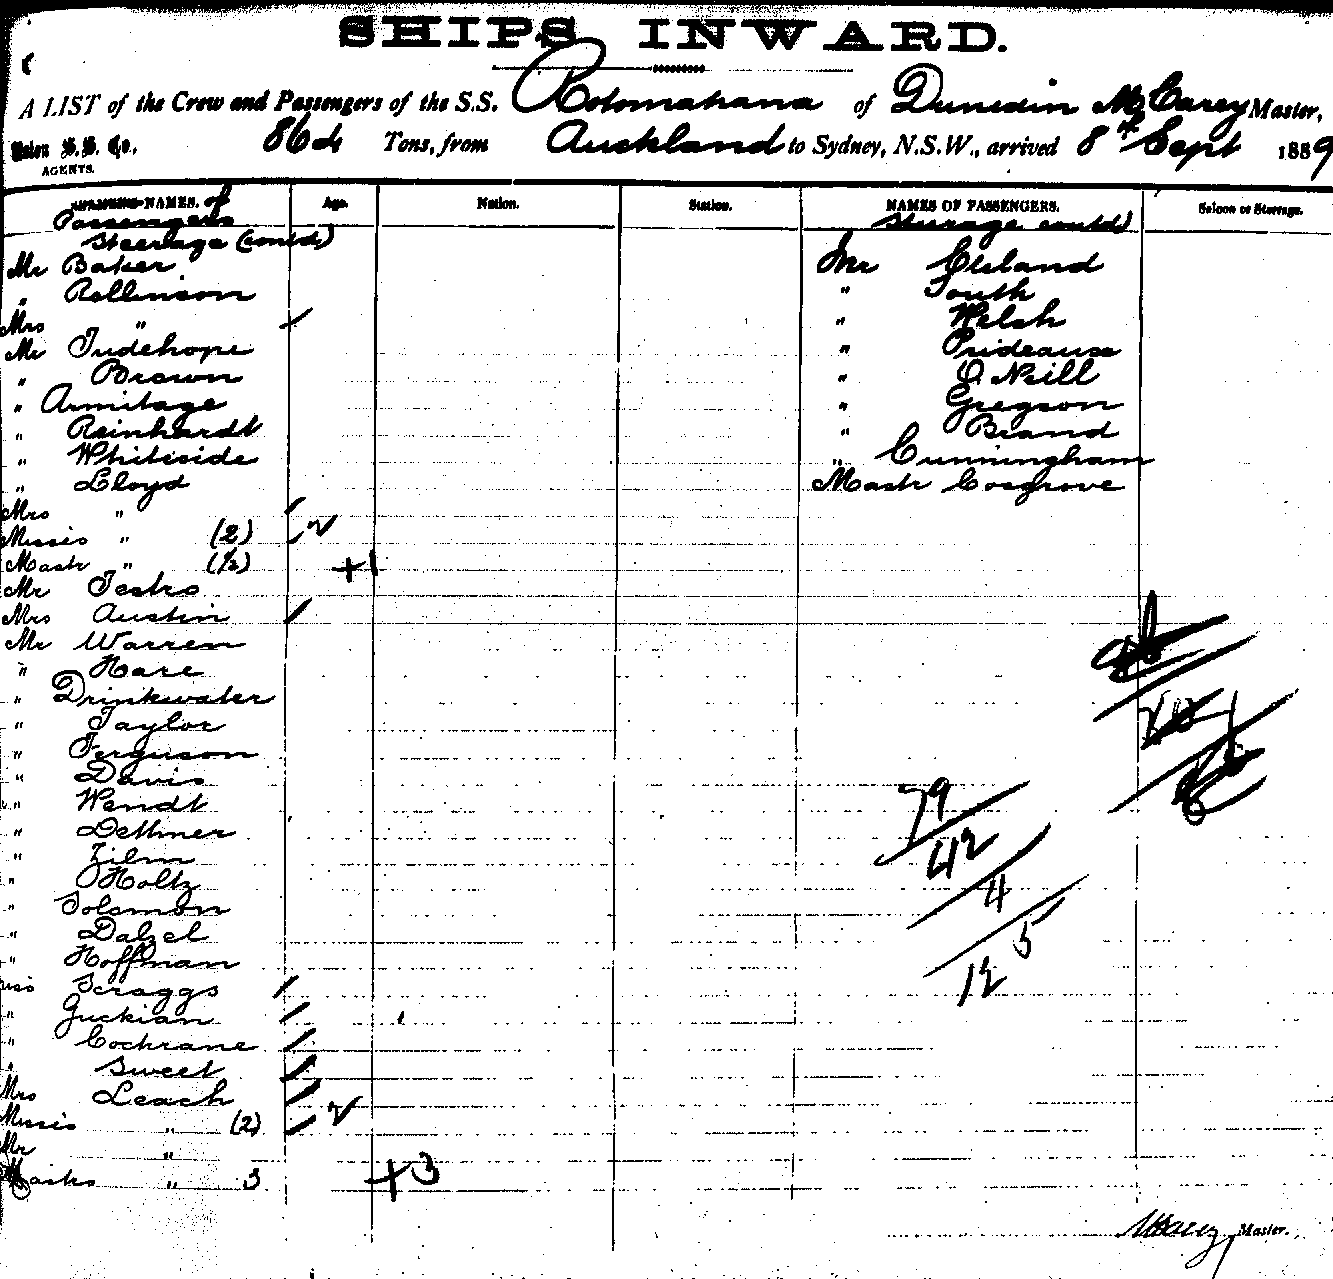 SHIPS INWARD.
A LIST of the Crew and Passengers of the S.S. Rotomahana of Dunedin M. Carey Master,
Union S.S. Co., AGENTS. 864 Tons, from Auckland to Sydney, N.S.W., arrived 8th Sept 1889
NAMES. of Age. Nation. Station. NAMES OF PASSENGERS. Saloon or Steerage.
Passengers
Steerage (contd)
Mr Baker
" Rollinson
Mrs "
Mr Tudehope
" Brown
" Armitage
" Reinhardt
" Whiteside
" Lloyd
Mrs "
Misses " (2) 2
Mastr " (1/2) +1
Mr Testro
Mrs Austin
Mr Warren
" Hare
" Drinkwater
" Taylor
" Ferguson
" Davis
" Wendt
" Dethmer
" Zilm
" Holtz
" Solomon
" Dalzel
" Hoffman
Scraggs
" Guckian
" Cochrane
" Sweet
Mrs Leach
Misses " (2) 2
Mr "
Mastrs " 3 +3
Steerage contd)
Mr Cleland
" South
" Welsh
" Prideaux
" O'Neill
" Gregson
" Brand
" Cunningham
Mastr Cosgrove
79
42
4
5
12
M Carey Master.